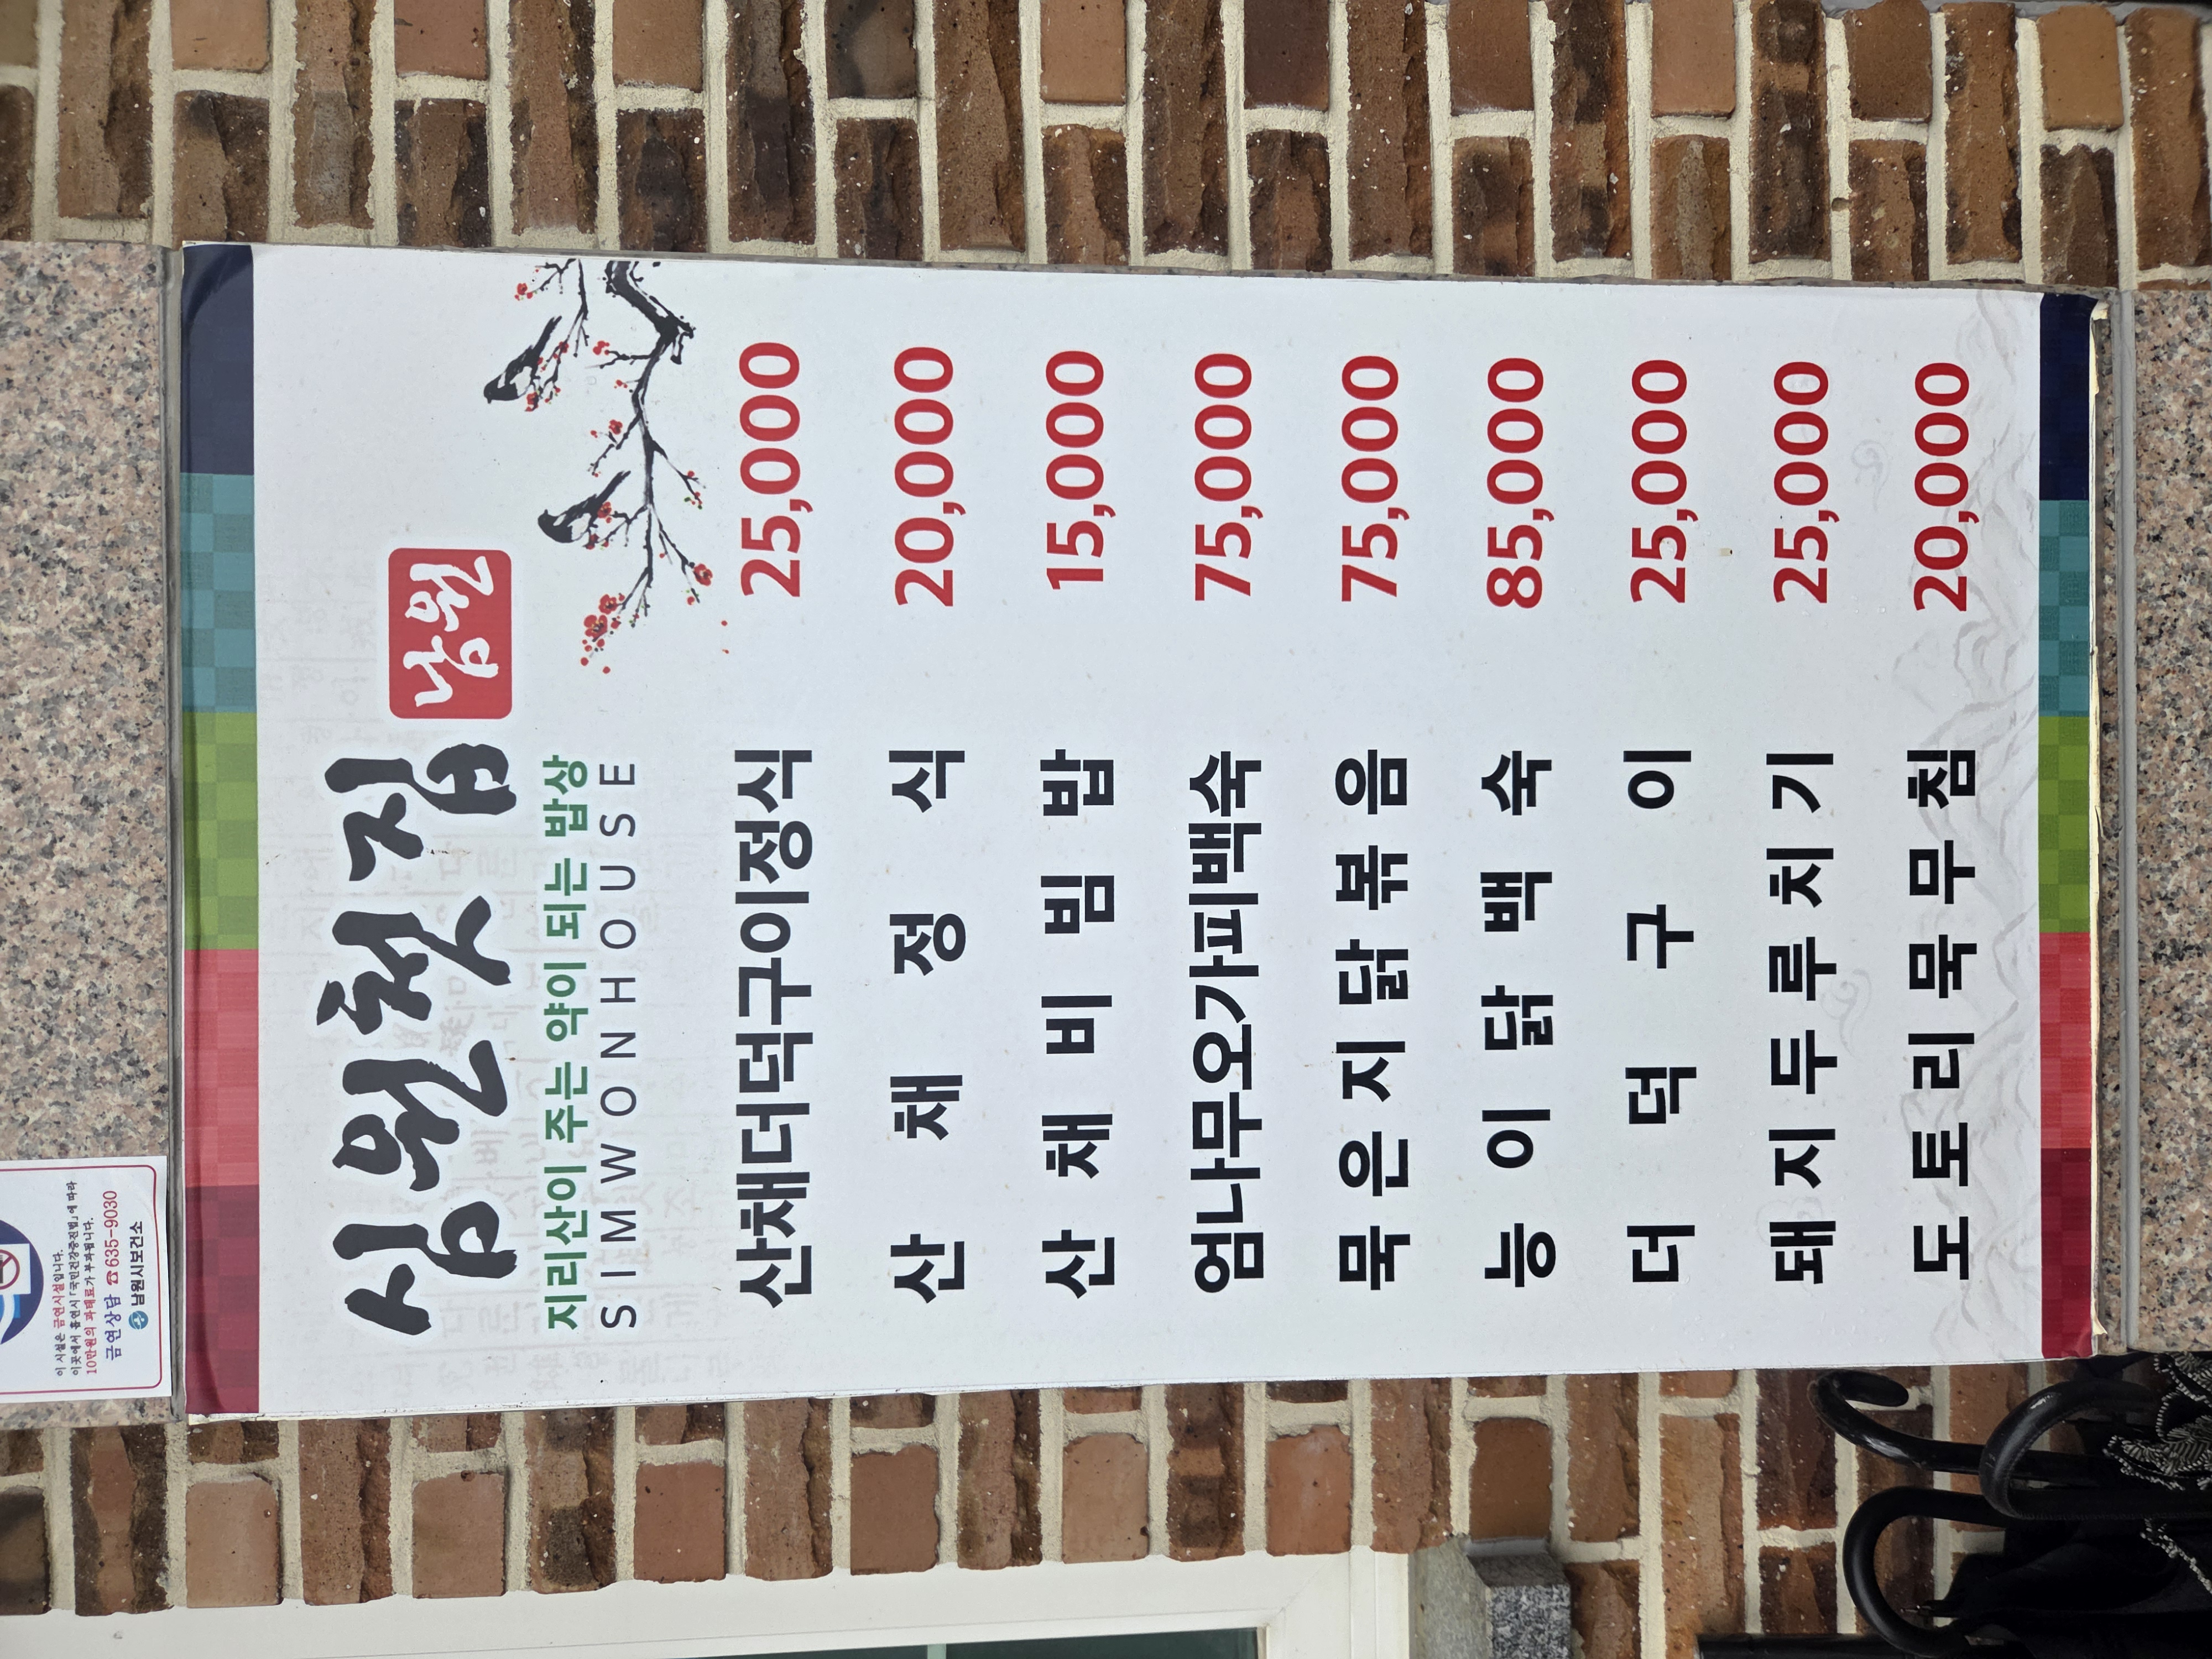 심원첫집 남원
지리산이 주는 약이 되는 밥상
SIMWONHOUSE
산채더덕구이정식 25,000
산채정식 20,000
산채비빔밥 15,000
엄나무오가피백숙 75,000
묵은지닭볶음 75,000
능이닭백숙 85,000
더덕구이 25,000
돼지두루치기 25,000
도토리묵무침 20,000
이 시설은 금연시설입니다.
이곳에서 흡연시 「국민건강증진법」에 따라
10만원의 과태료가 부과됩니다.
금연상담 ☎635-9030
남원시보건소